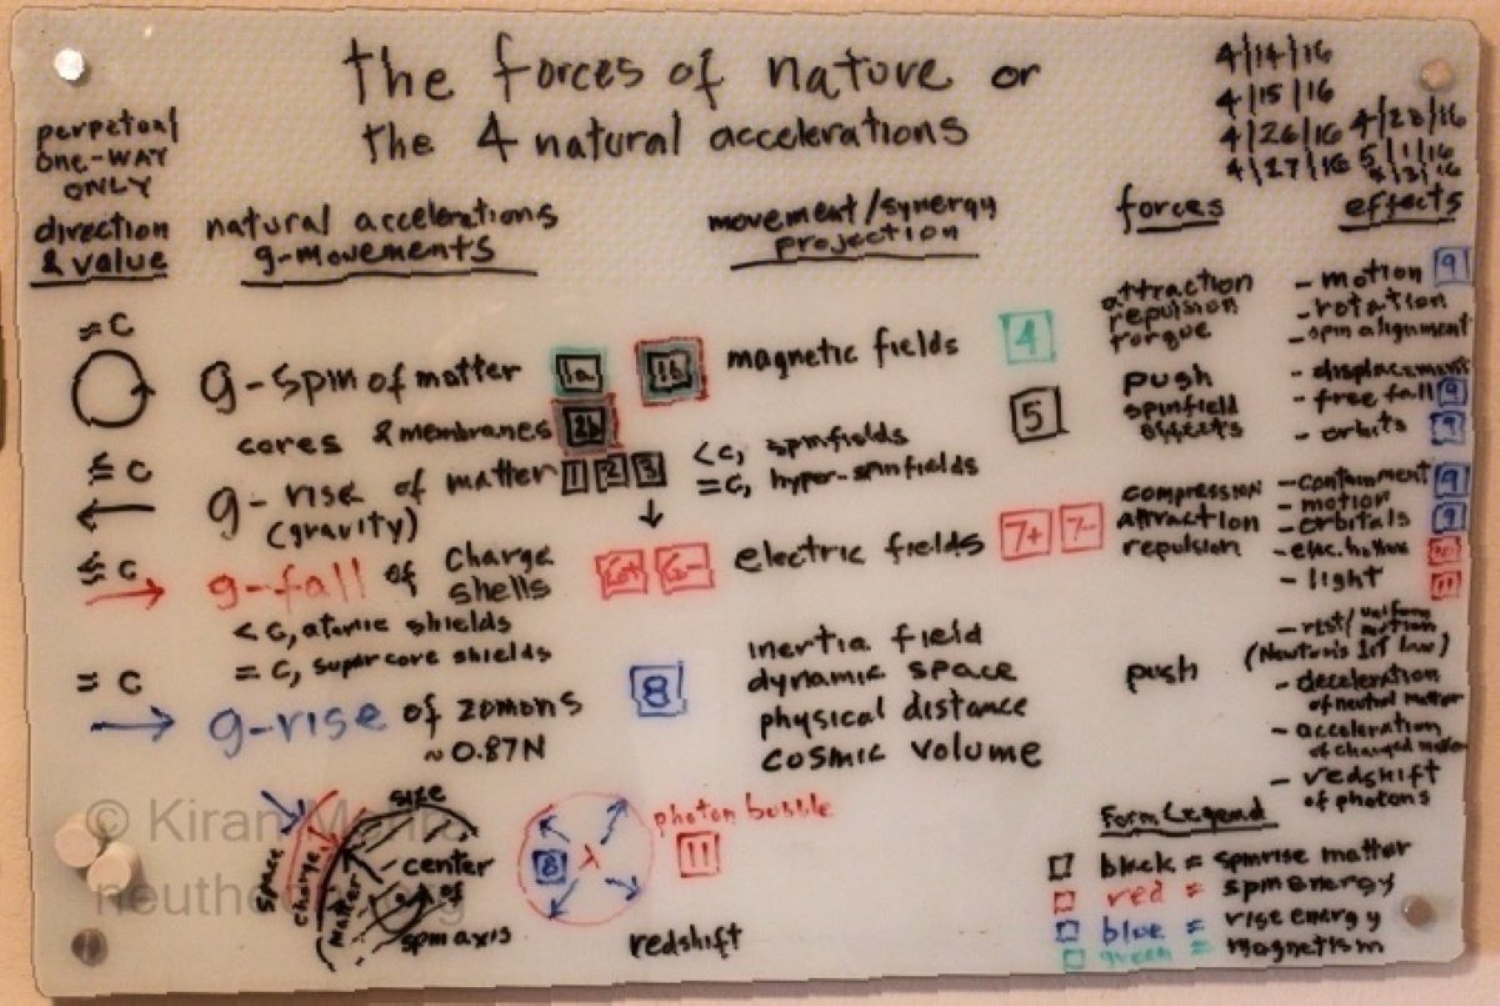 the forces of nature or
the 4 natural accelerations
4/14/16
4/15/16
4/26/16 4/28/16
4/27/16 5/1/16
perpetual
ONE-WAY
ONLY
direction
& value
natural accelerations
g-movements
movement/synergy
projection
forces
effects
≈ C
g-spin of matter 1a 1b magnetic fields 4
cores & membranes 2b
attraction
repulsion
torque
- motion 9
- rotation
- spin alignment
≤ C
g-rise of matter 1 2 3
(gravity)
<C, spinfields 5
=C, hyper-spinfields
push
spinfield
effects
- displacement
- free fall 9
- orbits 9
≤ C
g-fall of charge
shells
6+ 6- electric fields 7+ 7-
<C, atomic shields
= C, supercore shields
compression
attraction
repulsion
- containment 9
- motion
- orbitals 9
- elec.
- light 11
= C
g-rise of zomons 8
~0.87N
inertia field
dynamic space
physical distance
cosmic volume
push
- rest/uniform
motion
(Newton's 1st law)
- deceleration
of neutral matter
- acceleration
of charged matter
- redshift
of photons
size
space
charge
matter
center
of
spin axis
photon bubble
11
8 λ
redshift
Form Legend
black = spinrise matter
red = spin energy
blue = rise energy
green = magnetism
© Kiran